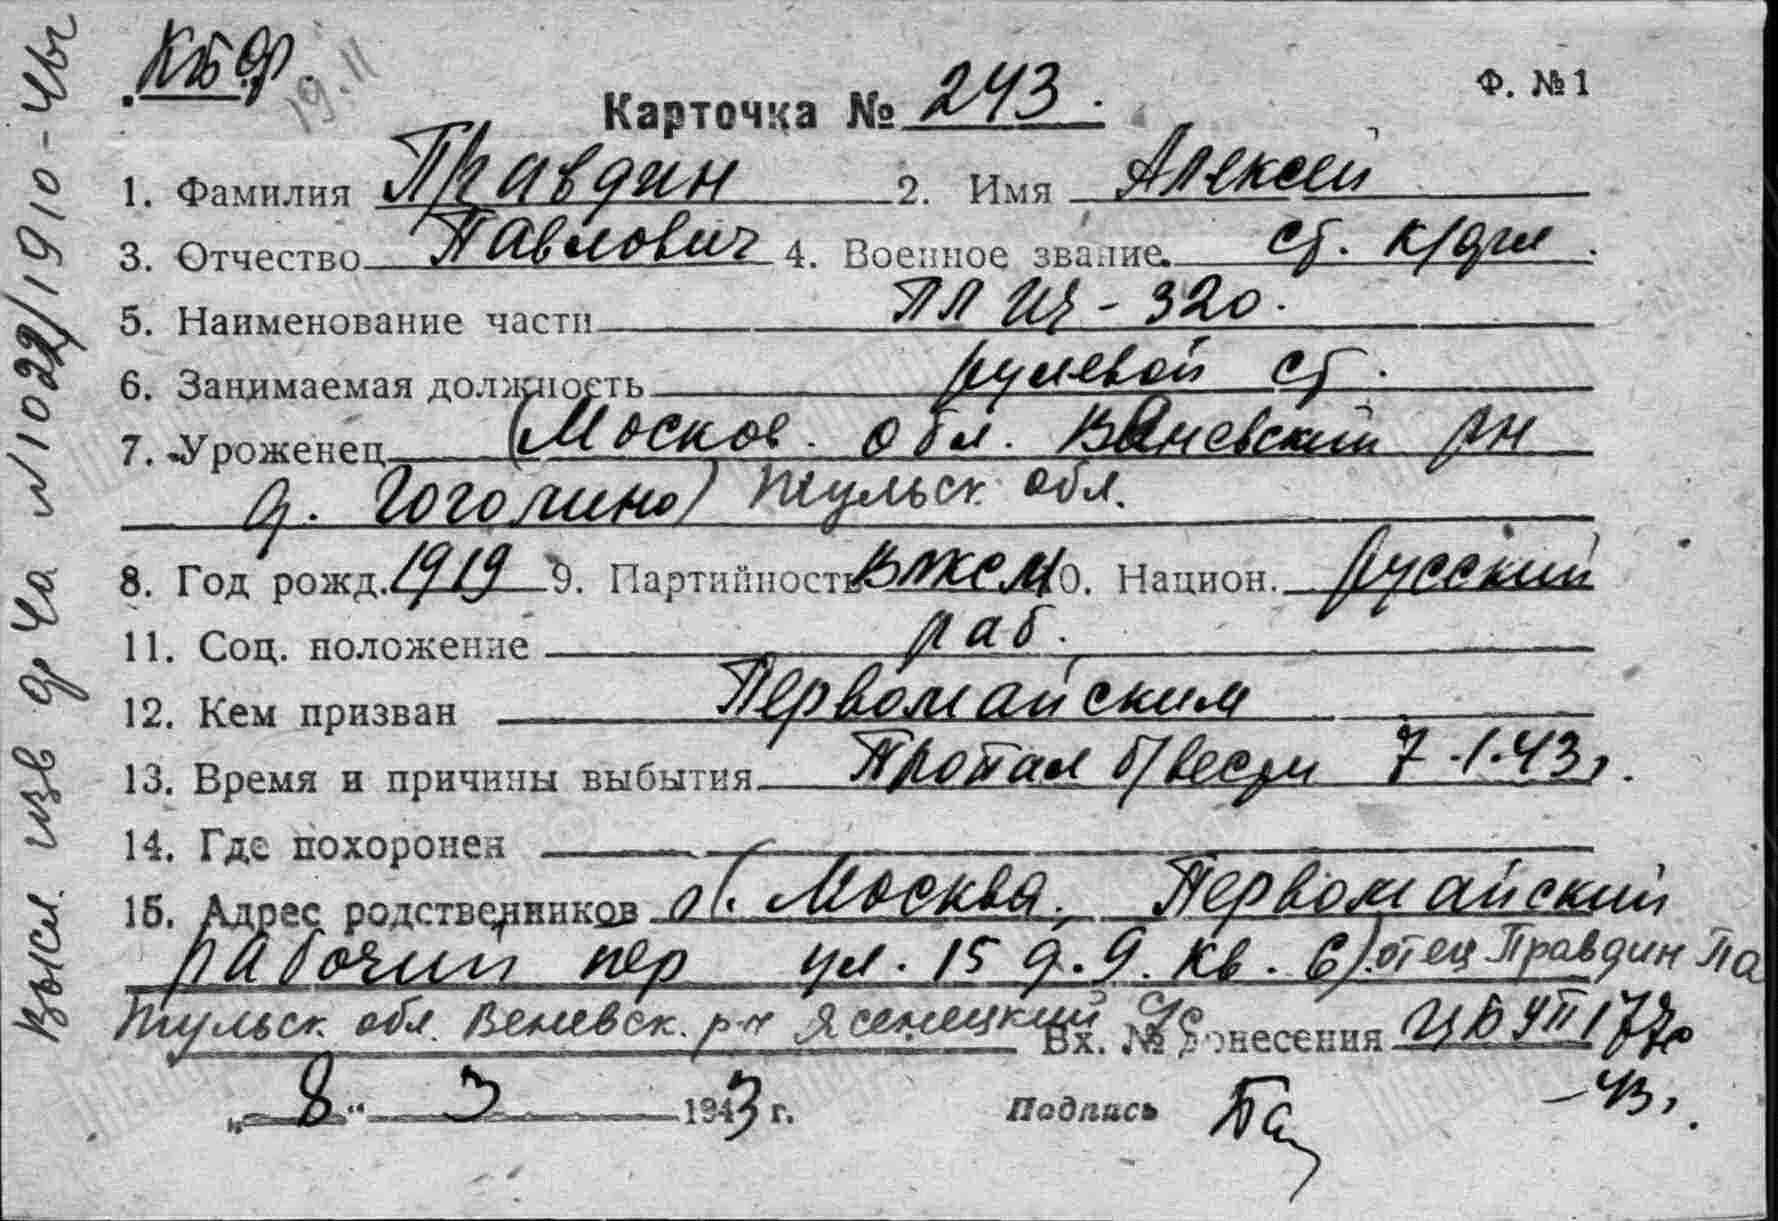 КБФ
19.11
Ф. №1
Карточка № 243.
1. Фамилия Правдин 2. Имя Алексей
3. Отчество Павлович 4. Военное звание ст. к/фл.
5. Наименование части ПЛ Щ-320.
6. Занимаемая должность рулевой ст.
7. Уроженец (Москов. обл. Веневский рн
д. Гоголино) Тульск. обл.
8. Год рожд. 1919 9. Партийность ВЛКСМ 10. Национ. русский
11. Соц. положение раб.
12. Кем призван Первомайским
13. Время и причины выбытия Пропал б/вести 7.1.43г.
14. Где похоронен
15. Адрес родственников (г. Москва, Первомайский
рабочий пер ул. 15 д. 9. кв. 6) отец Правдин Па
Тульск. обл. Веневск. р-н Ясенецкий с/с
Вх. № донесения ЦБУП 177с
-43г.
„8“ 3 1943 г. Подпись
Высл. изв №1022/1910